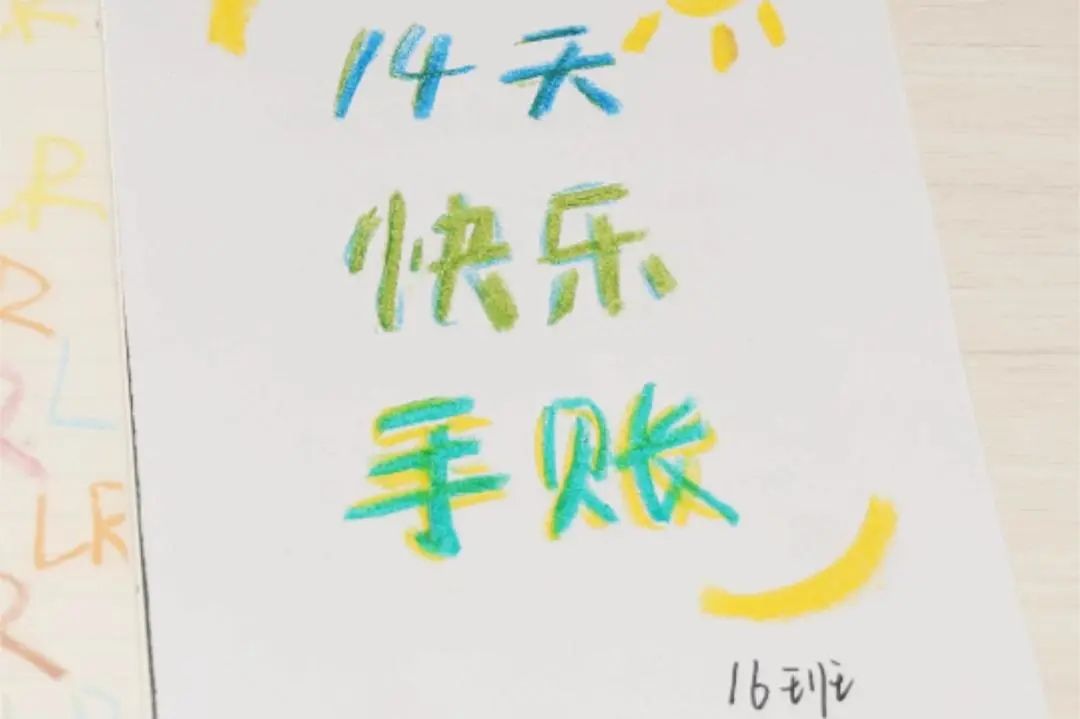 14天
快乐
手账
16班
R
R
R
L
LR
R